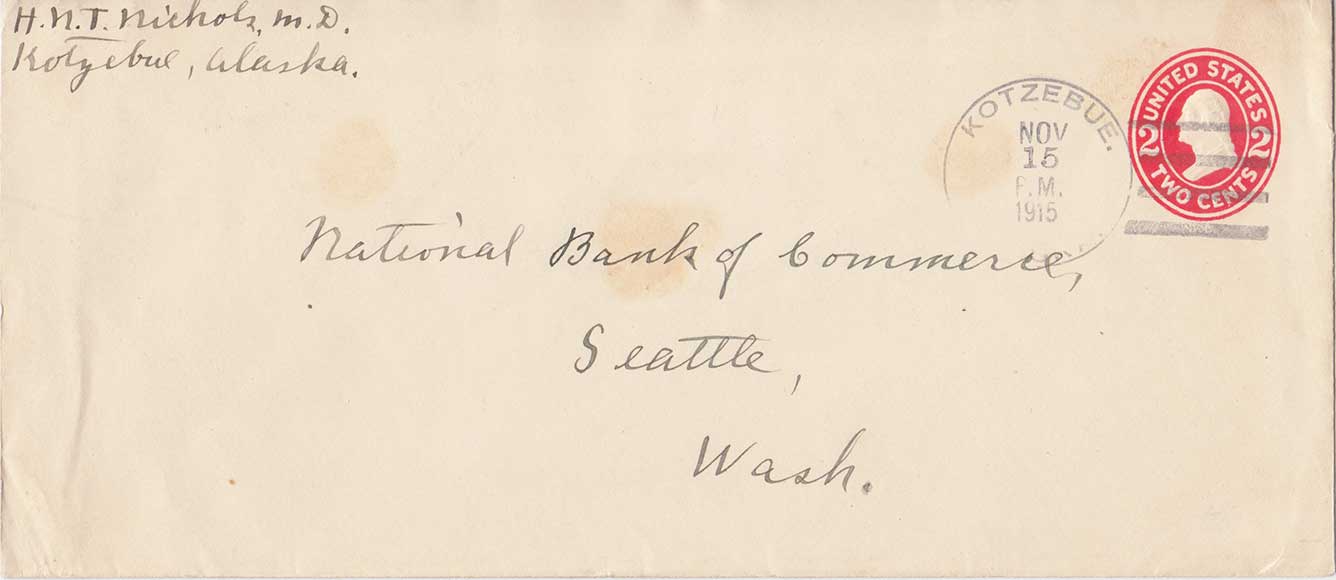 H.N.T. Nichols, M.D.
Kotzebue, Alaska.
KOTZEBUE.
NOV
15
P.M.
1915
UNITED STATES
2 2
TWO CENTS
National Bank of Commerce,
Seattle,
Wash.